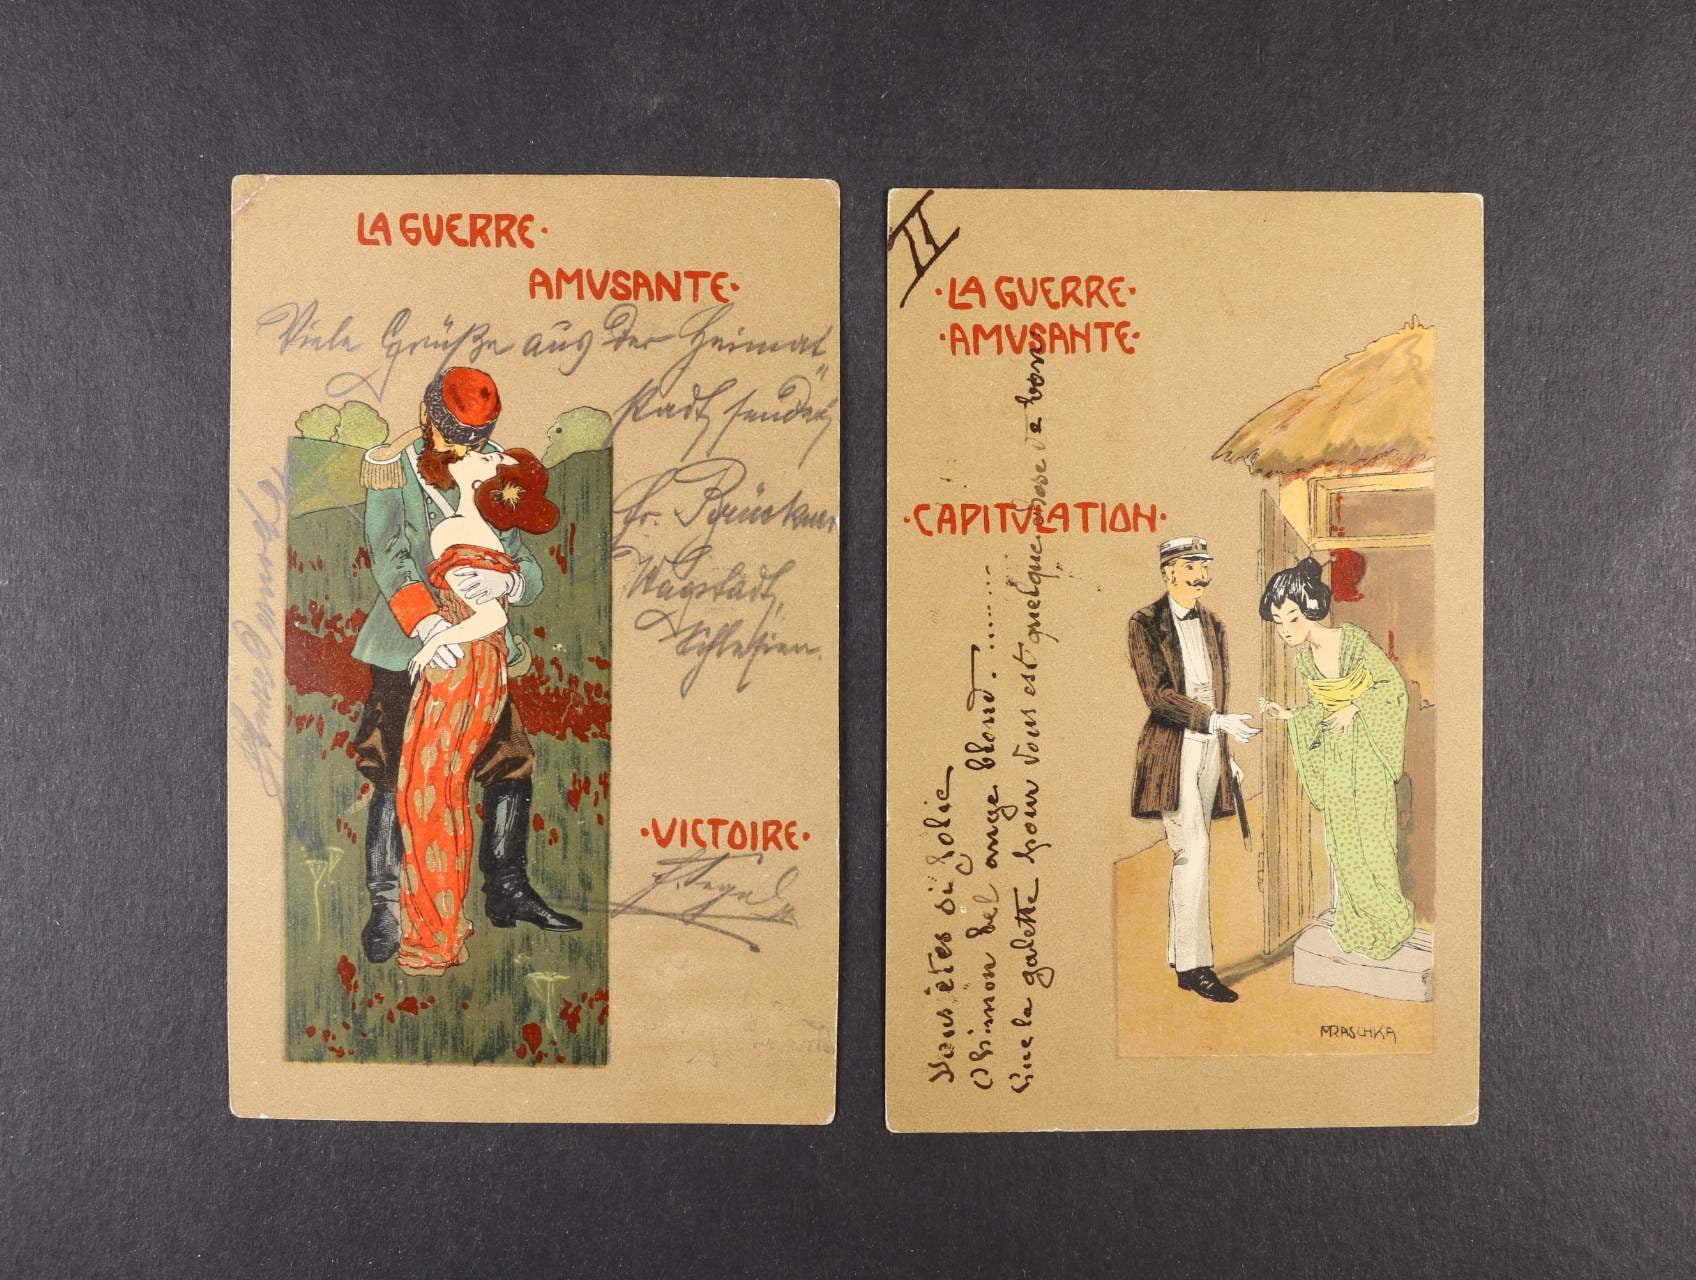 LA GUERRE·
AMVSANTE·
Viele Grüße aus der Heimat
stadt sendet
Fr. Brückner
Wagstadt,
Schlesien.
·VICTOIRE·
II
·LA GUERRE·
·AMVSANTE·
·CAPITVLATION·
Vous êtes si jolie
O Simon bel ange blond........
Que la galette pour vous est quelque chose de bon
MRASCHKA